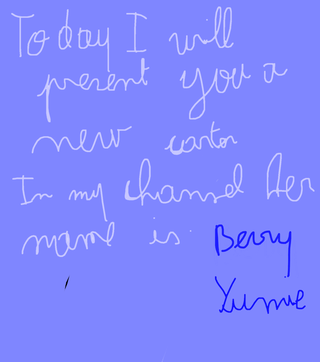 Today I will
present you a
new carton
In my channel Her
name is Berry
Yumme